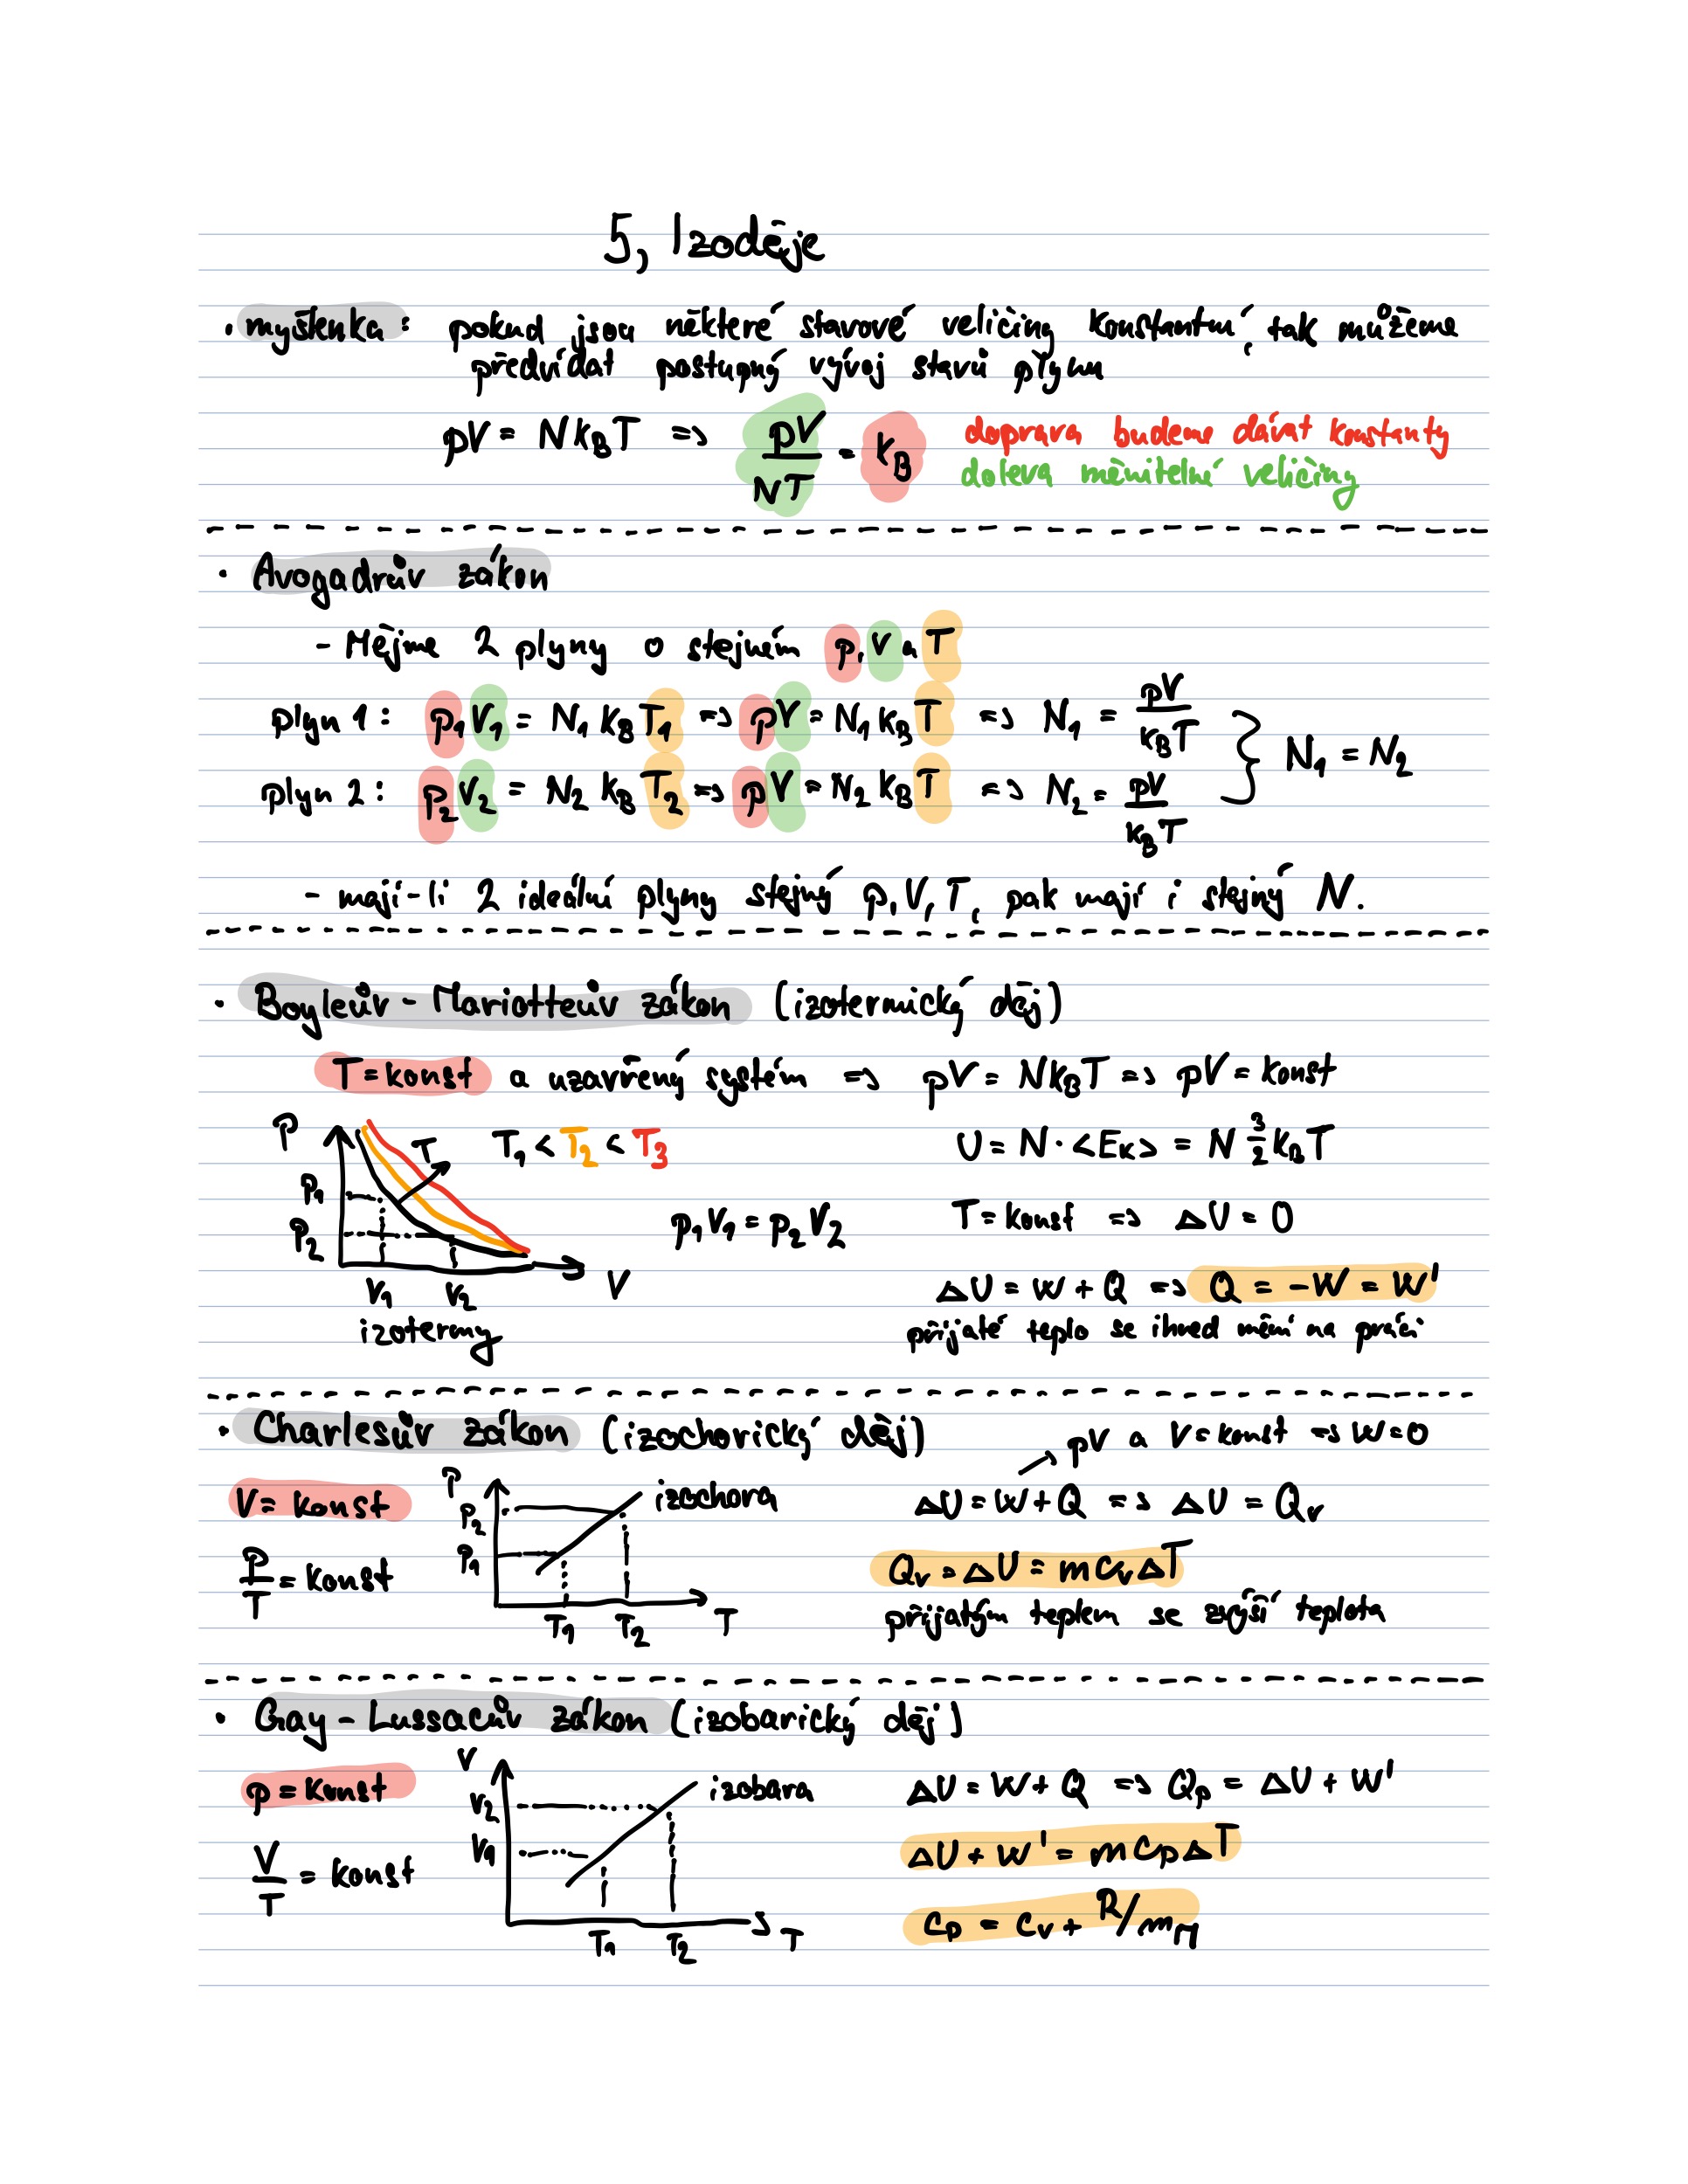 5, Izoděje
• myšlenka: pokud jsou některé stavové veličiny konstantní, tak můžeme
předvídat postupný vývoj stavů plynu
pV = N k_B T => pV/NT = k_B
doprava budeme dávat konstanty
doleva měnitelné veličiny
• Avogadrův zákon
- Mějme 2 plyny o stejném p, V a T
plyn 1: p₁V₁ = N₁ k_B T₁ => pV = N₁ k_B T => N₁ = pV/k_BT
plyn 2: p₂V₂ = N₂ k_B T₂ => pV = N₂ k_B T => N₂ = pV/k_BT
} N₁ = N₂
- mají-li 2 ideální plyny stejný p, V, T, pak mají i stejný N.
• Boyleův - Mariotteův zákon (izotermický děj)
T = konst a uzavřený systém => pV = Nk_BT => pV = konst
p
p₁
p₂
V₁ V₂
V
T
izotermy
T₁ < T₂ < T₃
p₁V₁ = p₂V₂
U = N · <E_K> = N 3/2 k_B T
T = konst => ΔU = 0
ΔU = W + Q => Q = -W = W'
přijaté teplo se ihned mění na práci
• Charlesův zákon (izochorický děj)
V = konst
p/T = konst
p
p₂
p₁
T₁ T₂
T
izochora
pV a V = konst => W = 0
ΔU = W + Q => ΔU = Q_V
Q_V = ΔU = m c_V ΔT
přijatým teplem se zvýší teplota
• Gay - Lussacův zákon (izobarický děj)
p = konst
V/T = konst
V
V₂
V₁
T₁ T₂
T
izobara
ΔU = W + Q => Q_p = ΔU + W'
ΔU + W' = m c_p ΔT
c_p = c_V + R/m_M